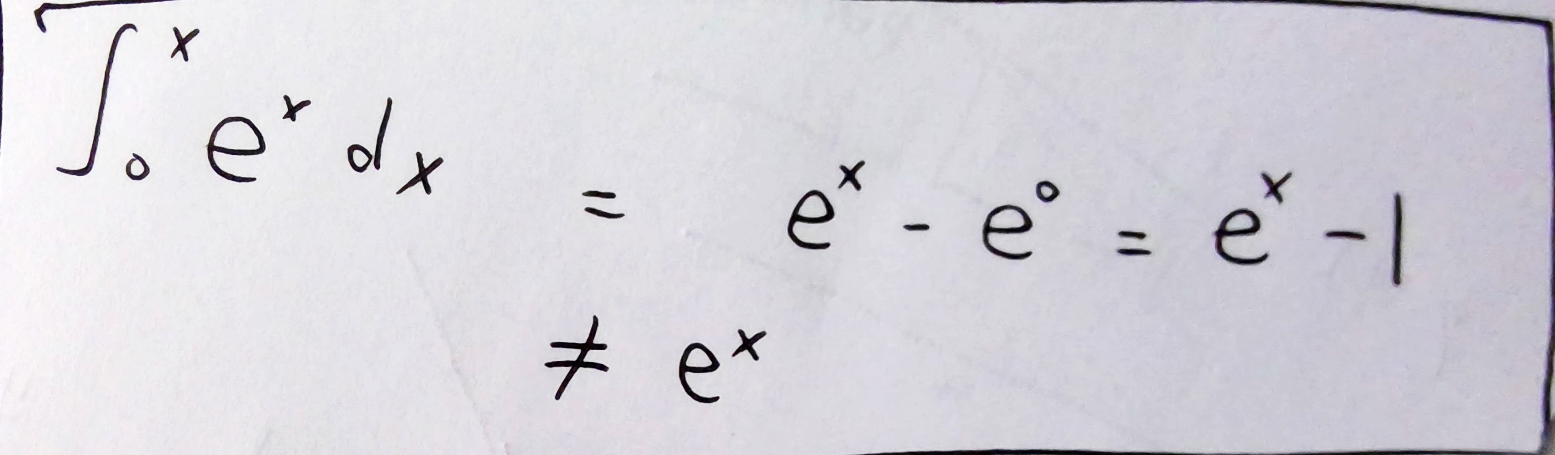 ∫₀ˣ eˣ dx = eˣ - e⁰ = eˣ - 1
≠ eˣ